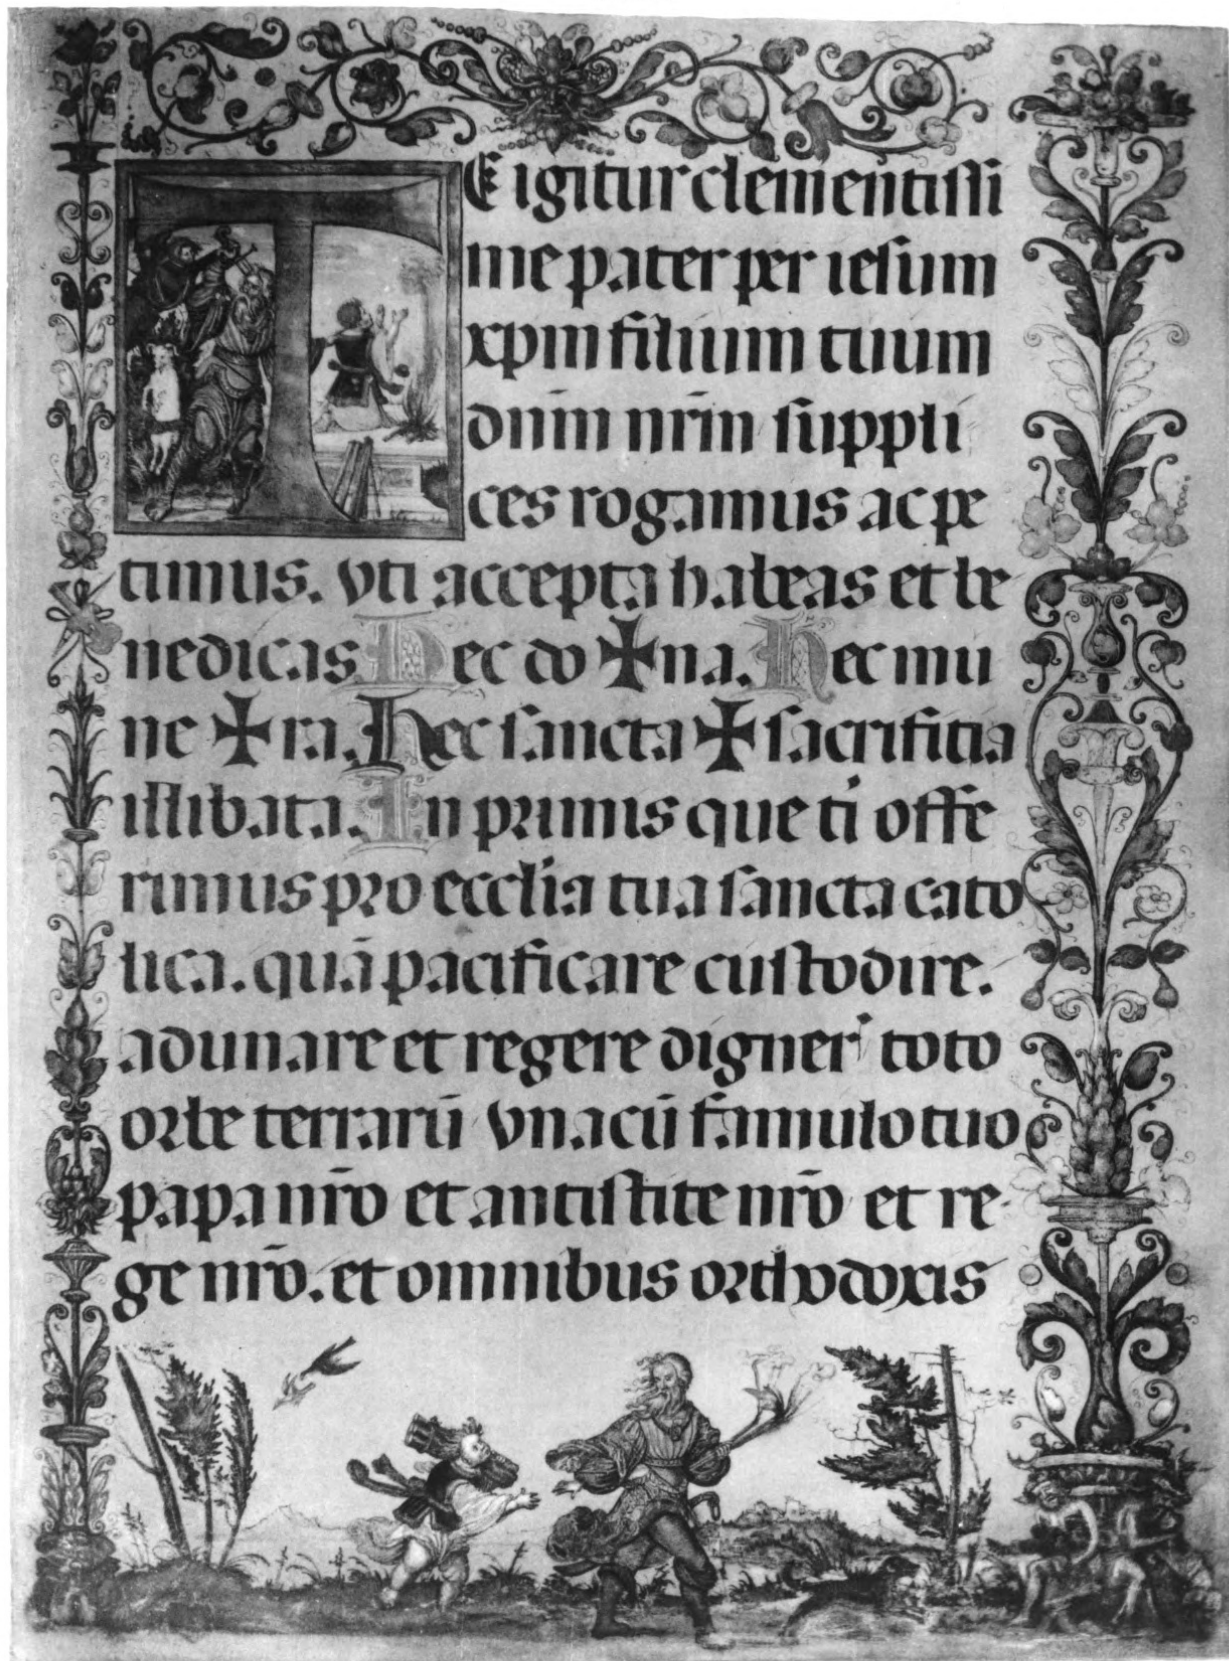 TE igitur clementissi
me pater per iesum
xpm filium tuum
dnm nrm suppli
ces rogamus ac pe
timus. vti accepta habeas et be
nedicas. Hec do ✠ na. Hec mu
ne ✠ ra. Hec sancta ✠ sacrificia
illibata. In primis que ti offe
rimus pro ecclia tua sancta cato
lica. quā pacificare custodire.
adunare et regere digner' toto
orbe terrarū vna cū famulo tuo
papa nr̄o et antistite nr̄o et re
ge nr̄o. et omnibus orthodoxis